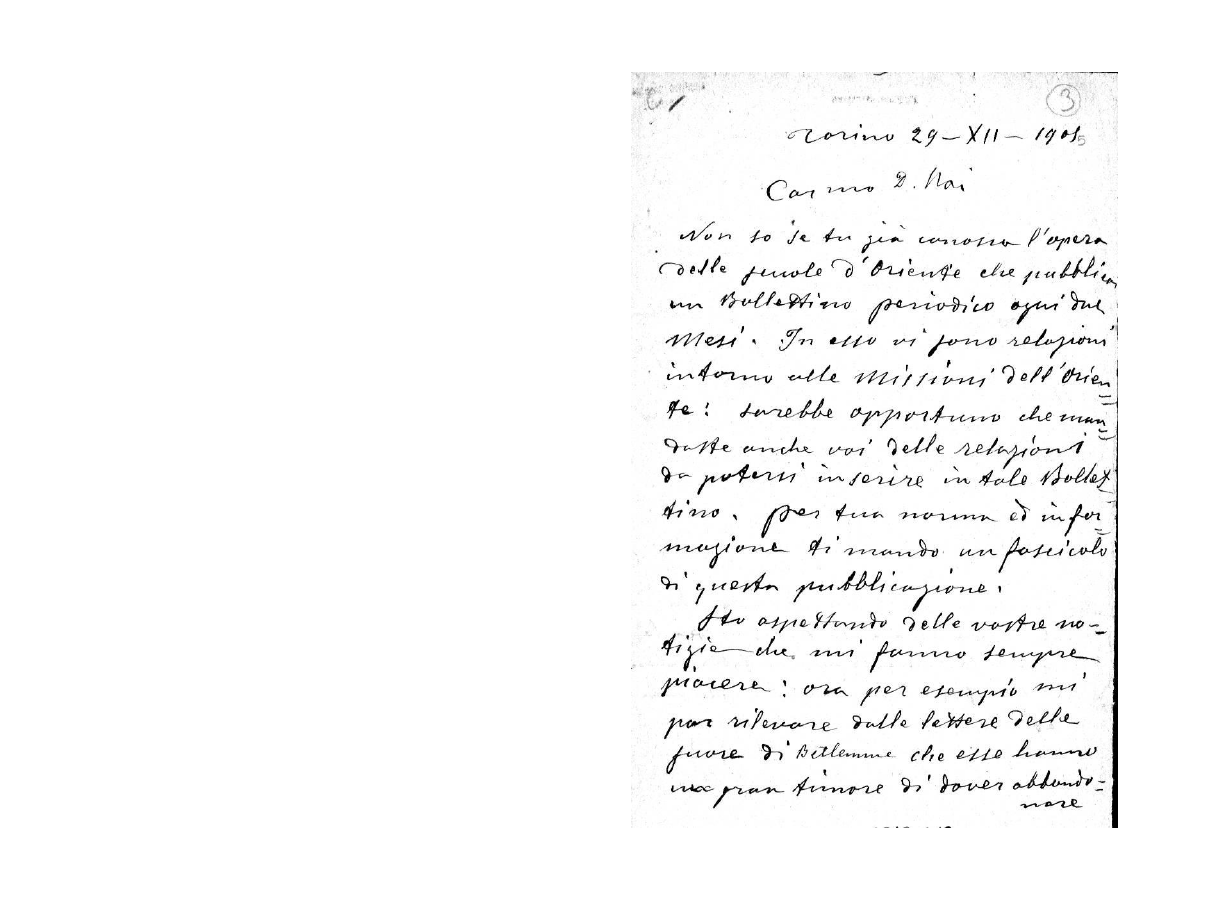 3
Torino 29 - XII - 1905
Car mo D. Nai
Non so se tu già conosca l'opera
delle scuole d'Oriente che pubblica
un Bollettino periodico ogni due
Mesi. In esso vi sono relazioni
intorno alle Missioni dell'Orien=
te: sarebbe opportuno che man=
daste anche voi delle relazioni
da potersi inserire in tale Bollet=
tino. Per tua norma ed infor=
mazione ti mando un fascicolo
di questa pubblicazione.
Sto aspettando delle vostre no=
tizie che mi fanno sempre
piacere: ora per esempio mi
par rilevare dalle lettere delle
suore di Betlemme che esse hanno
un gran timore di dover abbando=
nare